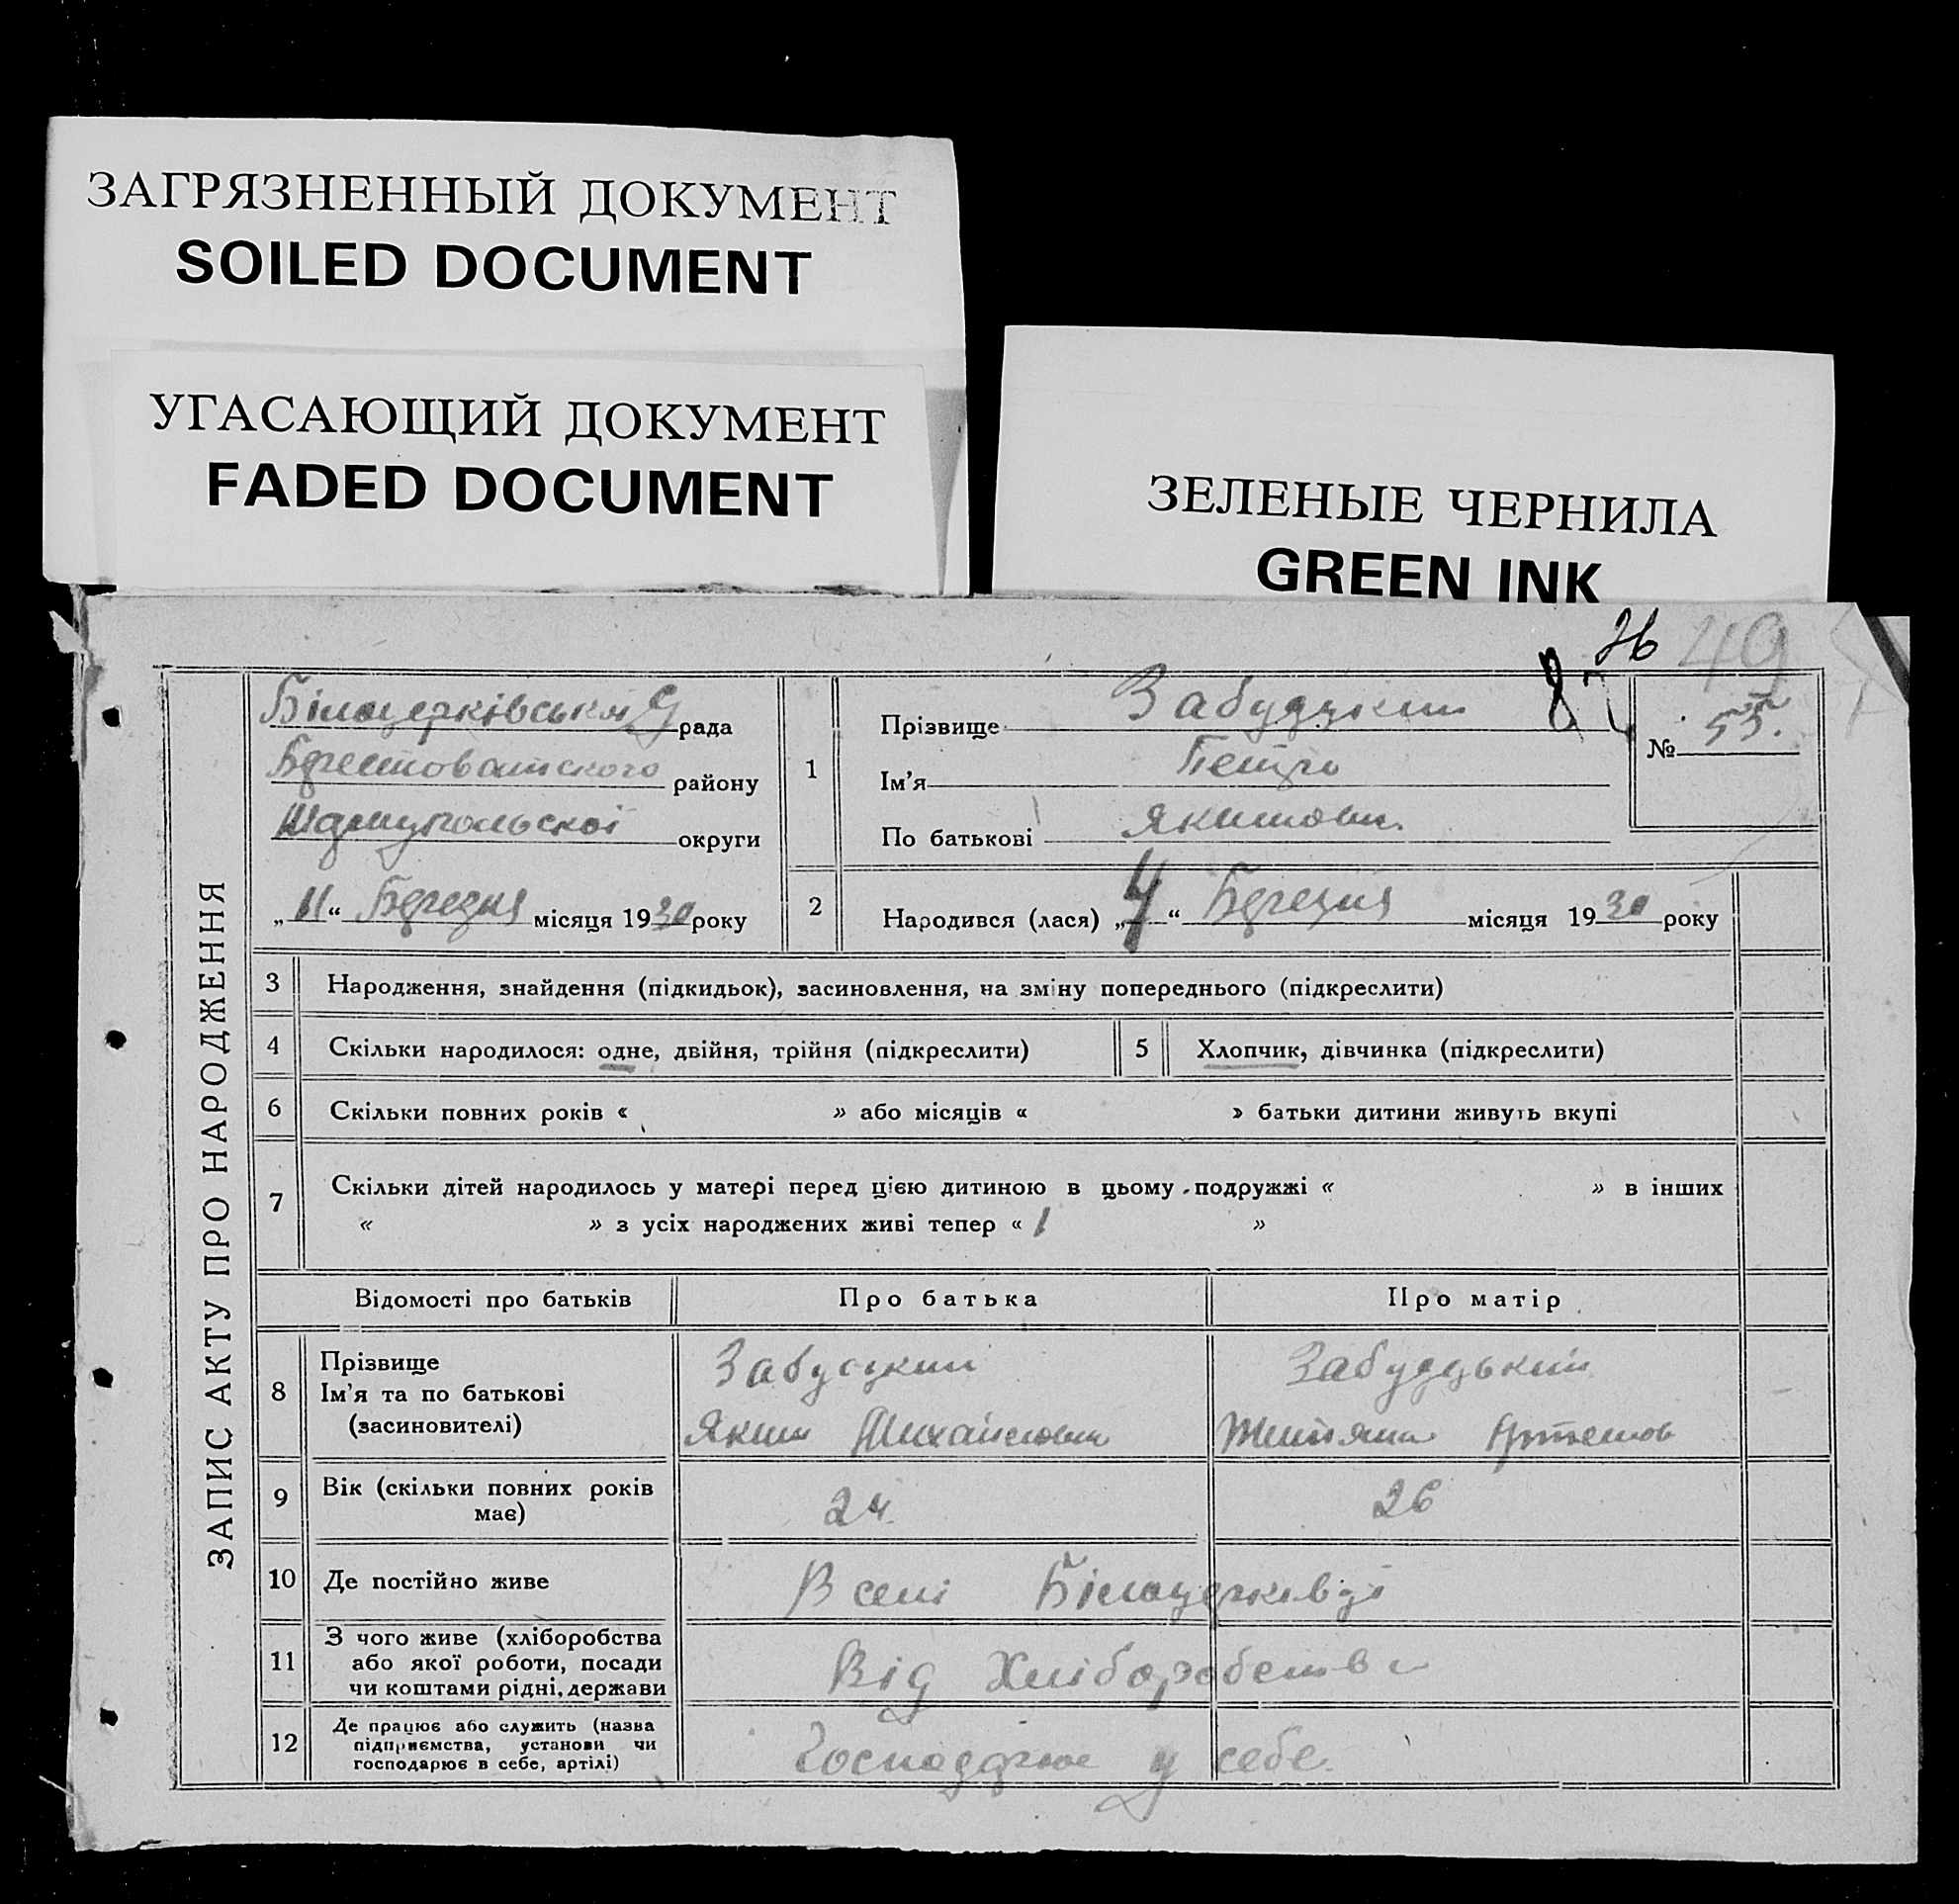 ЗАГРЯЗНЕННЫЙ ДОКУМЕНТ
SOILED DOCUMENT
УГАСАЮЩИЙ ДОКУМЕНТ
FADED DOCUMENT
ЗЕЛЕНЫЕ ЧЕРНИЛА
GREEN INK
49
ЗАПИС АКТУ ПРО НАРОДЖЕННЯ
рада
району
округи
„11“ Березня місяця 1930 року
1
Прізвище Забудцкий
Ім'я Петро
По батькові Якимович
№ 55.
2 Народився (лася) „4“ Березня місяця 1930 року
3 Народження, знайдення (підкидьок), засиновлення, на зміну попереднього (підкреслити)
4 Скільки народилося: одне, двійня, трійня (підкреслити) 5 Хлопчик, дівчинка (підкреслити)
6 Скільки повних років « » або місяців « » батьки дитини живуть вкупі
7 Скільки дітей народилось у матері перед цією дитиною в цьому подружжі « » в інших
« » з усіх народжених живі тепер « 1 »
Відомості про батьків Про батька Про матір
8 Прізвище
Ім'я та по батькові
(засиновителі)
Яким Михайлович
9 Вік (скільки повних років має) 24 26
10 Де постійно живе В селі Білоцерківці
11 З чого живе (хліборобства
або якої роботи, посади
чи коштами рідні, держави
Від Хліборобства
12 Де працює або служить (назва
підприємства, установи чи
господарює в себе, артілі)
Господарює у себе.